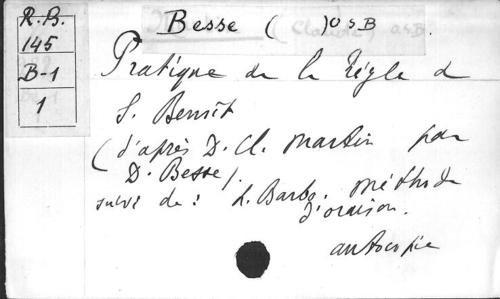 R.B.
145
B-1
1
Besse ( ) O S B
Pratique de la Règle de
S. Benoît
(d'après D. Cl. Martin par
D. Besse).
suivi de : L. Barbo. Méthode
d'oraison.
autocopie